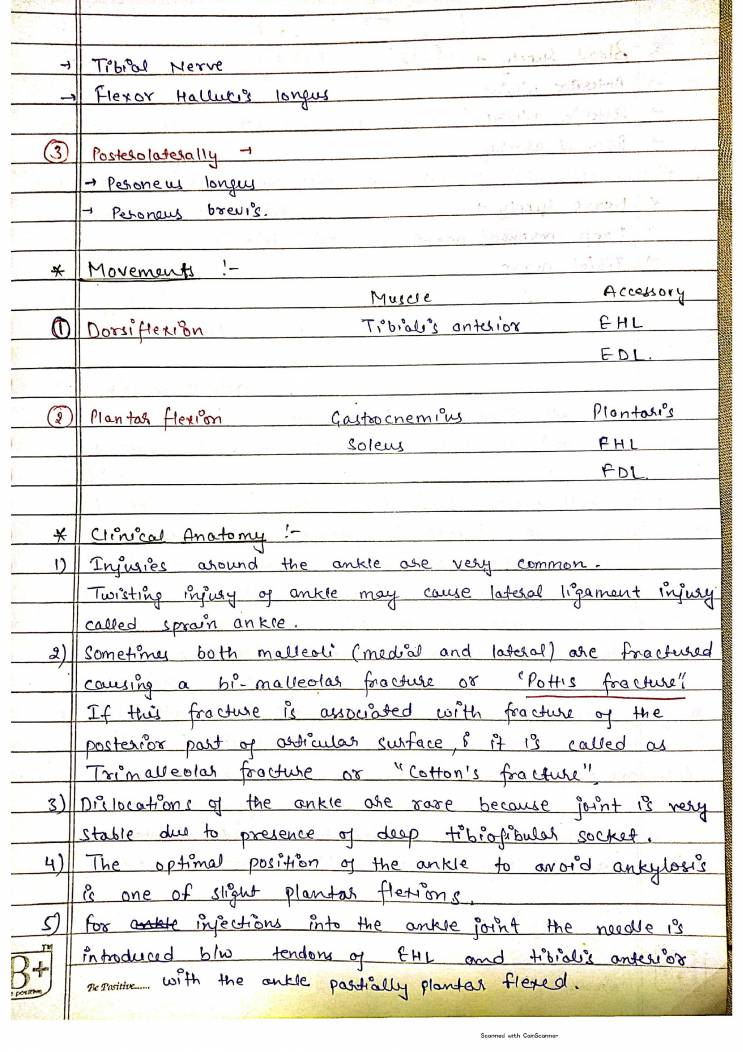 → Tibial Nerve
→ Flexor Hallucis longus
③ Posterolaterally →
→ Peroneus longus
→ Peroneus brevis.
* Movements :-
Muscle Accessory
① Dorsiflexion Tibialis anterior EHL
EDL.
② Plantar flexion Gastrocnemius Plantaris
Soleus FHL
FDL
* Clinical Anatomy :-
1) Injuries around the ankle are very common.
Twisting injury of ankle may cause lateral ligament injury
called sprain ankle.
2) Sometimes both malleoli (medial and lateral) are fractured
causing a bi-malleolar fracture or "Pottis fracture".
If this fracture is associated with fracture of the
posterior part of articular surface, it is called as
Trimalleolar fracture or "Cotton's fracture".
3) Dislocations of the ankle are rare because joint is very
stable due to presence of deep tibiofibular socket.
4) The optimal position of the ankle to avoid ankylosis
is one of slight plantar flexions.
5) for ankle injections into the ankle joint the needle is
introduced b/w tendons of EHL and tibialis anterior
with the ankle partially plantar flexed.
TM
B+
e positive
Be Positive......
Scanned with CamScanner